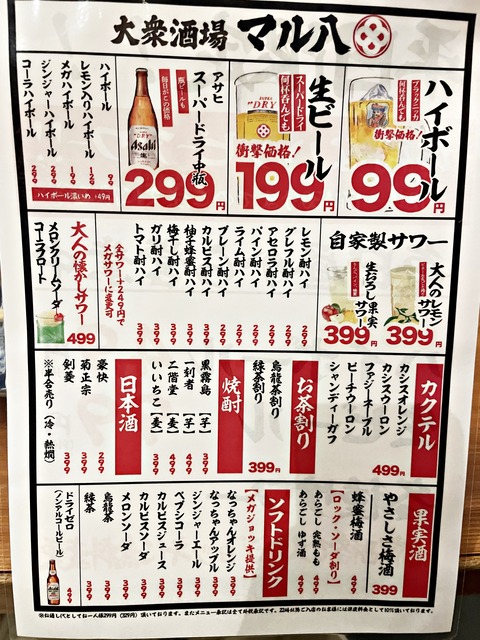 大衆酒場 マル八
ハイボール
ブラックニッカ
何杯呑んでも
衝撃価格!
99円
生ビール
スーパードライ
何杯呑んでも
衝撃価格!
199円
アサヒ
スーパードライ中瓶
瓶ビールも
毎日がこの価格
299円
ハイボール 99
レモン入りハイボール 129
メガハイボール 199
ジンジャーハイボール 299
コーラハイボール 299
ハイボール濃いめ +49円
自家製サワー
大人のレモンサワー
399円
生おろし果実サワー
399円
レモン酎ハイ 299
グレフル酎ハイ 299
アセロラ酎ハイ 299
パイン酎ハイ 299
ライム酎ハイ 299
プレーン酎ハイ 299
カルピス酎ハイ 399
柚子蜂蜜酎ハイ 399
梅干し酎ハイ 399
ガリ酎ハイ 399
トマト酎ハイ 399
全サワー+249円で
メガサワーに変更可
大人の懐かしサワー
メロンクリームソーダ
コーラフロート
499
カクテル
カシスオレンジ
カシスウーロン
ファジーネーブル
ピーチウーロン
シャンディーガフ
499円
お茶割り
烏龍茶割り
緑茶割り
399円
焼酎
黒霧島【芋】 399
一刻者【芋】 499
二階堂【麦】 499
いいちこ【麦】 399
日本酒
豪快 299
菊正宗 399
剣菱 399
※半合売り(冷・熱燗)
果実酒
やさしさ梅酒
399
蜂蜜梅酒 499
【ロック・ソーダ割り】
あらごし 完熟もも 499
あらごし ゆず酒 499
ソフトドリンク
【メガジョッキ提供】
なっちゃんオレンジ 399
なっちゃんアップル 399
ジンジャーエール 399
ペプシコーラ 399
カルピスジュース 399
カルピスソーダ 399
メロンソーダ 399
烏龍茶 399
緑茶 399
ドライゼロ
(ノンアルコールビール)
499
※お通し代としてお一人様299円(329円)頂いております。またメニュー表記は全て外税表記です。22時以降ご入店のお客様には深夜料金として10%頂いております。